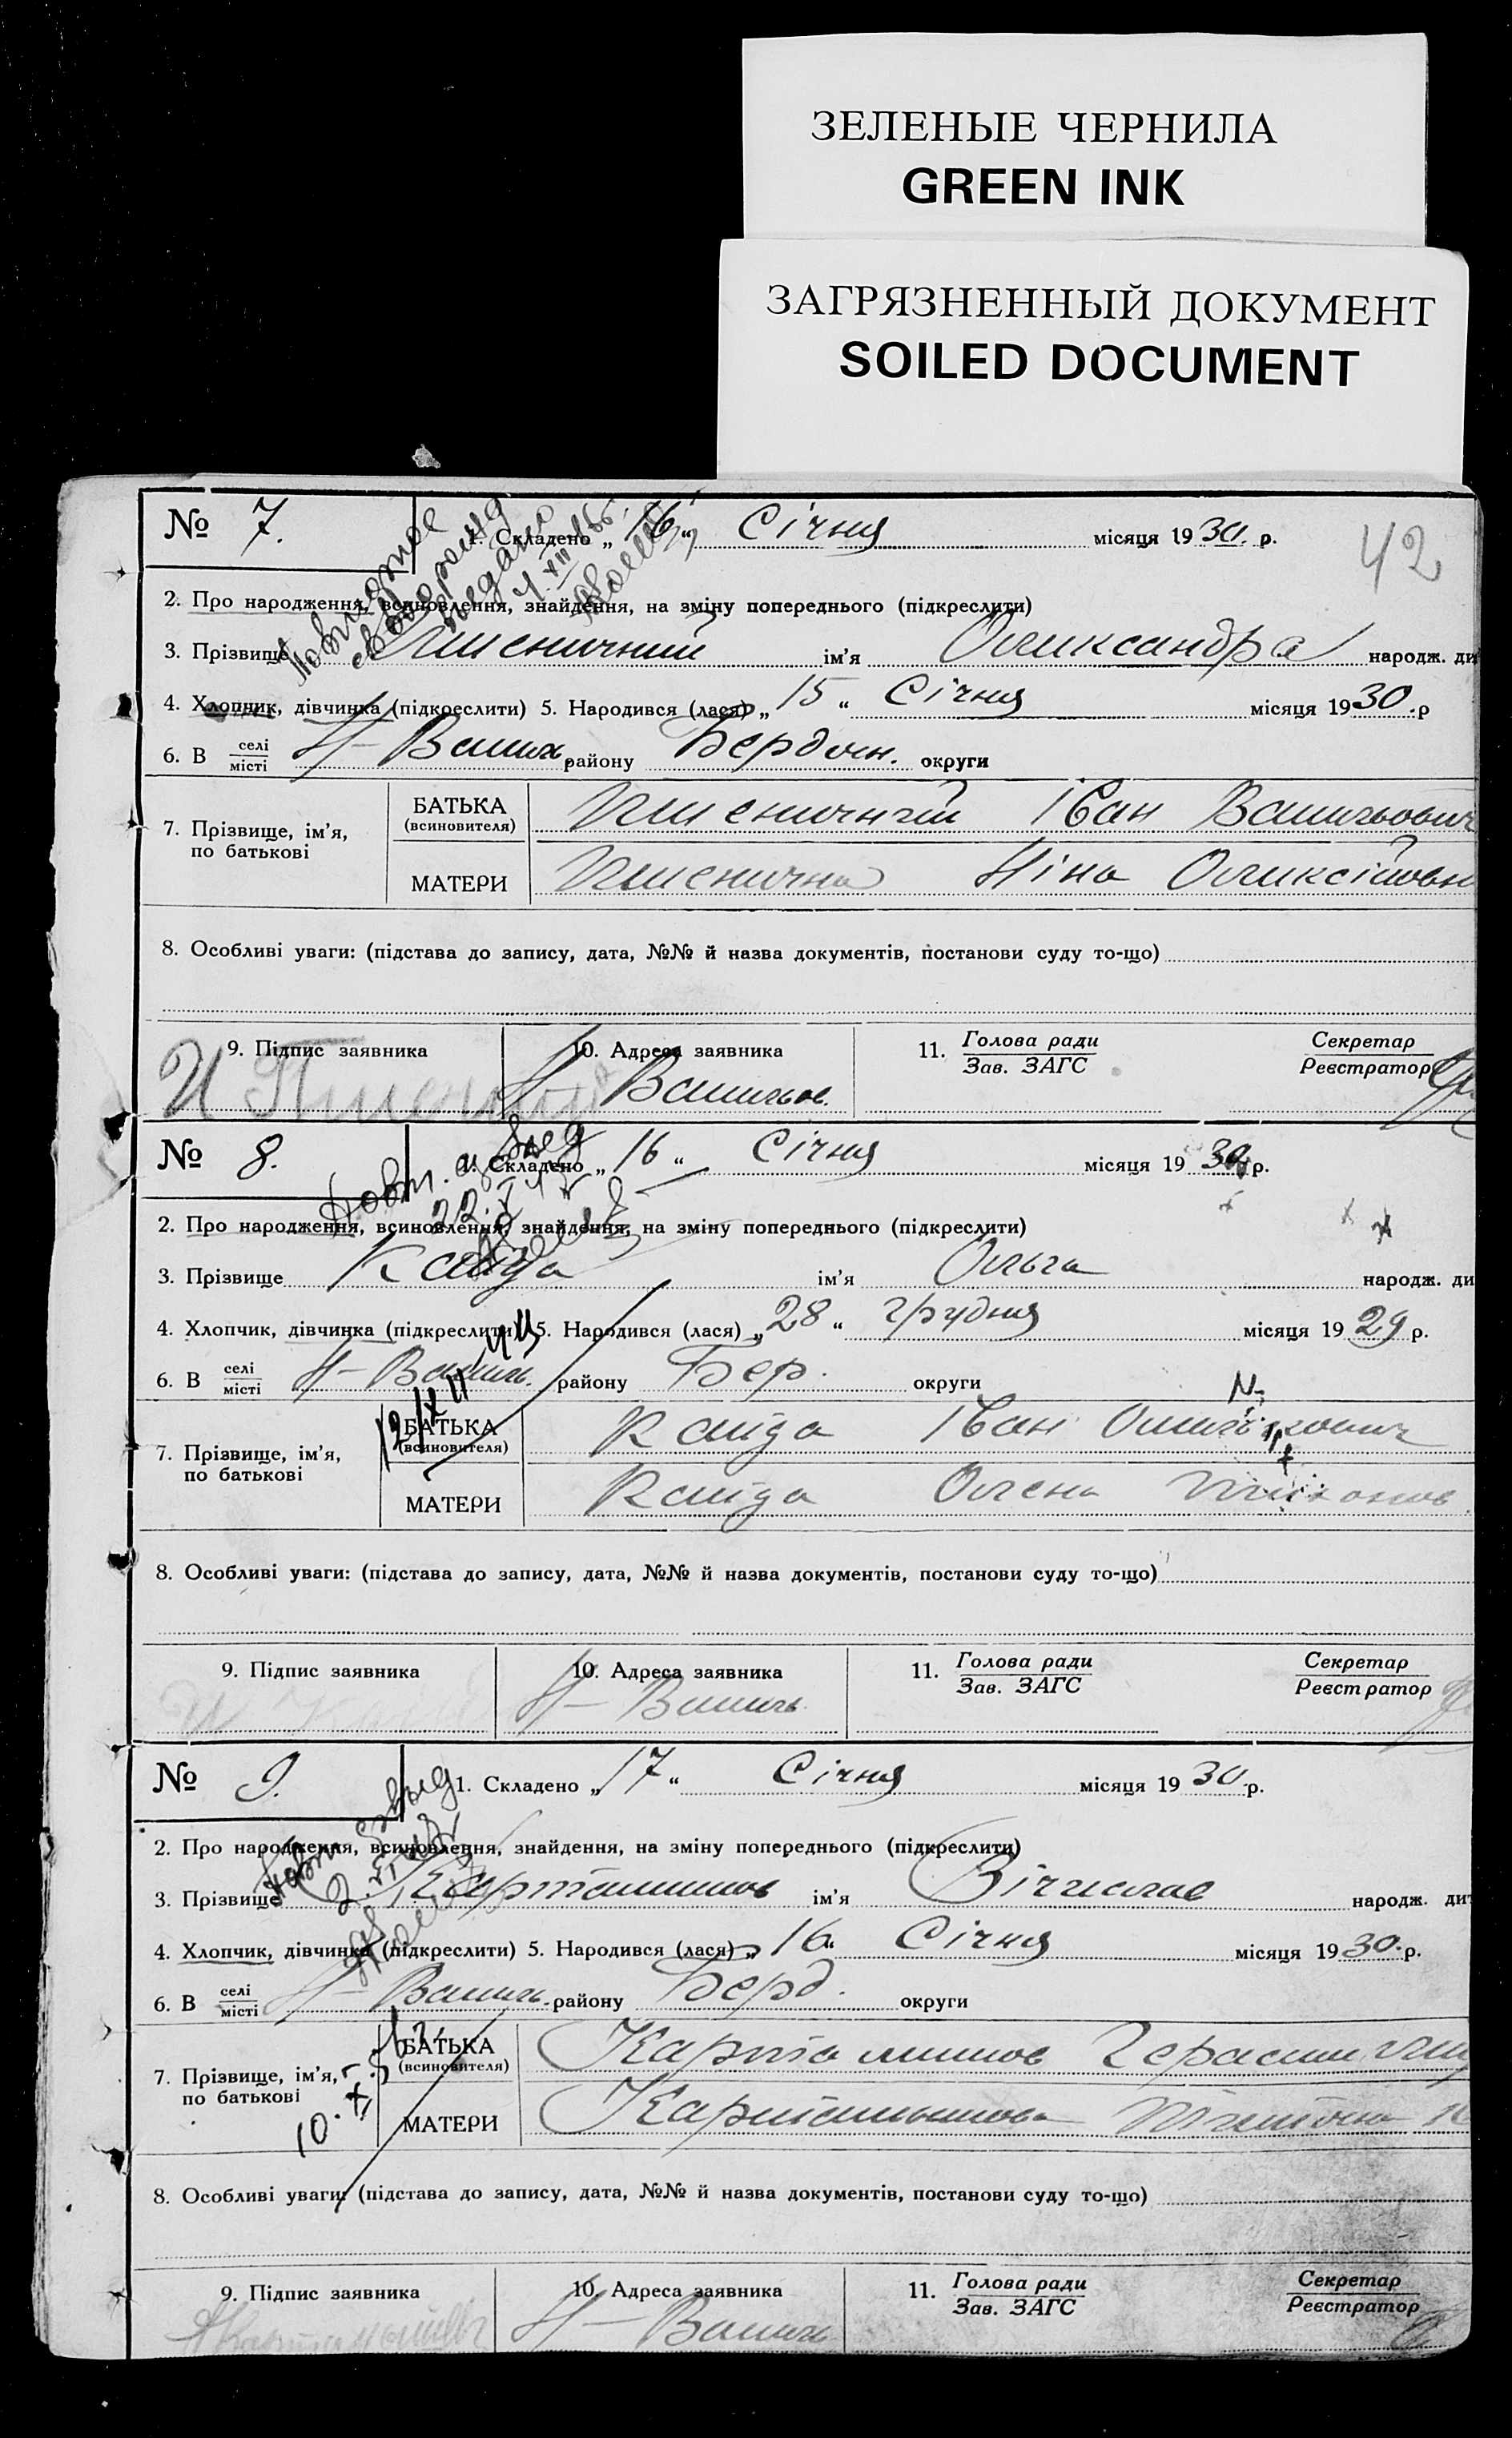 ЗЕЛЕНЫЕ ЧЕРНИЛА
GREEN INK
ЗАГРЯЗНЕННЫЙ ДОКУМЕНТ
SOILED DOCUMENT
42
№ 7. 1. Складено „16“ Січня місяця 1930 р.
Повторное
свидот
выдано
2. Про народження, всиновлення, знайдення, на зміну попереднього (підкреслити)
3. Прізвище Пшеничний ім'я Оликсандра народж. ди
4. Хлопчик, дівчинка (підкреслити) 5. Народився (лася) „15“ Січня місяця 1930.р
6. В селі/місті Н-Васил. району Бердян. округи
7. Прізвище, ім'я, по батькові
БАТЬКА (всиновителя) Пшеничний Іван Васильович
МАТЕРИ Пшенична Ніна Оликсіївн
8. Особливі уваги: (підстава до запису, дата, №№ й назва документів, постанови суду то-що)
9. Підпис заявника 10. Адреса заявника 11. Голова ради/Зав. ЗАГС Секретар/Реєстратор
Н-Васильов.
№ 8. 1. Складено „16“ Січня місяця 1930 р.
2. Про народження, всиновлення, знайдення, на зміну попереднього (підкреслити)
3. Прізвище Каида ім'я Ольга народж. ди
4. Хлопчик, дівчинка (підкреслити) 5. Народився (лася) „28“ грудня місяця 1929 р.
6. В селі/місті Н-Василь. району Бер. округи
7. Прізвище, ім'я, по батькові
БАТЬКА (всиновителя) Каида Іван
МАТЕРИ Каида Олена
8. Особливі уваги: (підстава до запису, дата, №№ й назва документів, постанови суду то-що)
9. Підпис заявника 10. Адреса заявника 11. Голова ради/Зав. ЗАГС Секретар/Реєстратор
Н-Василь.
№ 9. 1. Складено „17“ Січня місяця 1930 р.
2. Про народження, всиновлення, знайдення, на зміну попереднього (підкреслити)
3. Прізвище ім'я Вічислав народж. дит
4. Хлопчик, дівчинка (підкреслити) 5. Народився (лася) „16“ Січня місяця 1930.р.
6. В селі/місті Н-Василь. району Берд. округи
7. Прізвище, ім'я, по батькові
БАТЬКА (всиновителя) Герасим
МАТЕРИ
8. Особливі уваги: (підстава до запису, дата, №№ й назва документів, постанови суду то-що)
9. Підпис заявника 10. Адреса заявника 11. Голова ради/Зав. ЗАГС Секретар/Реєстратор
Н-Василь